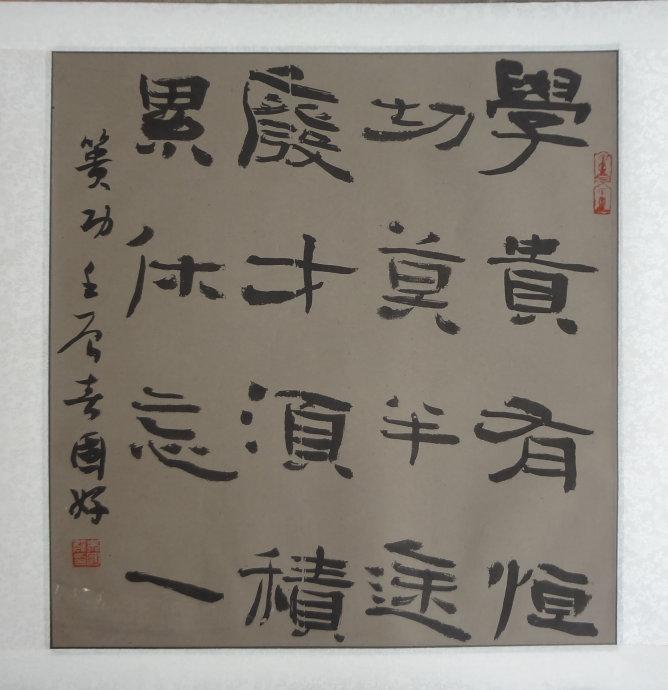 學貴有恒
切莫半途
廢才須積
累休忘一
簣功壬辰春國好